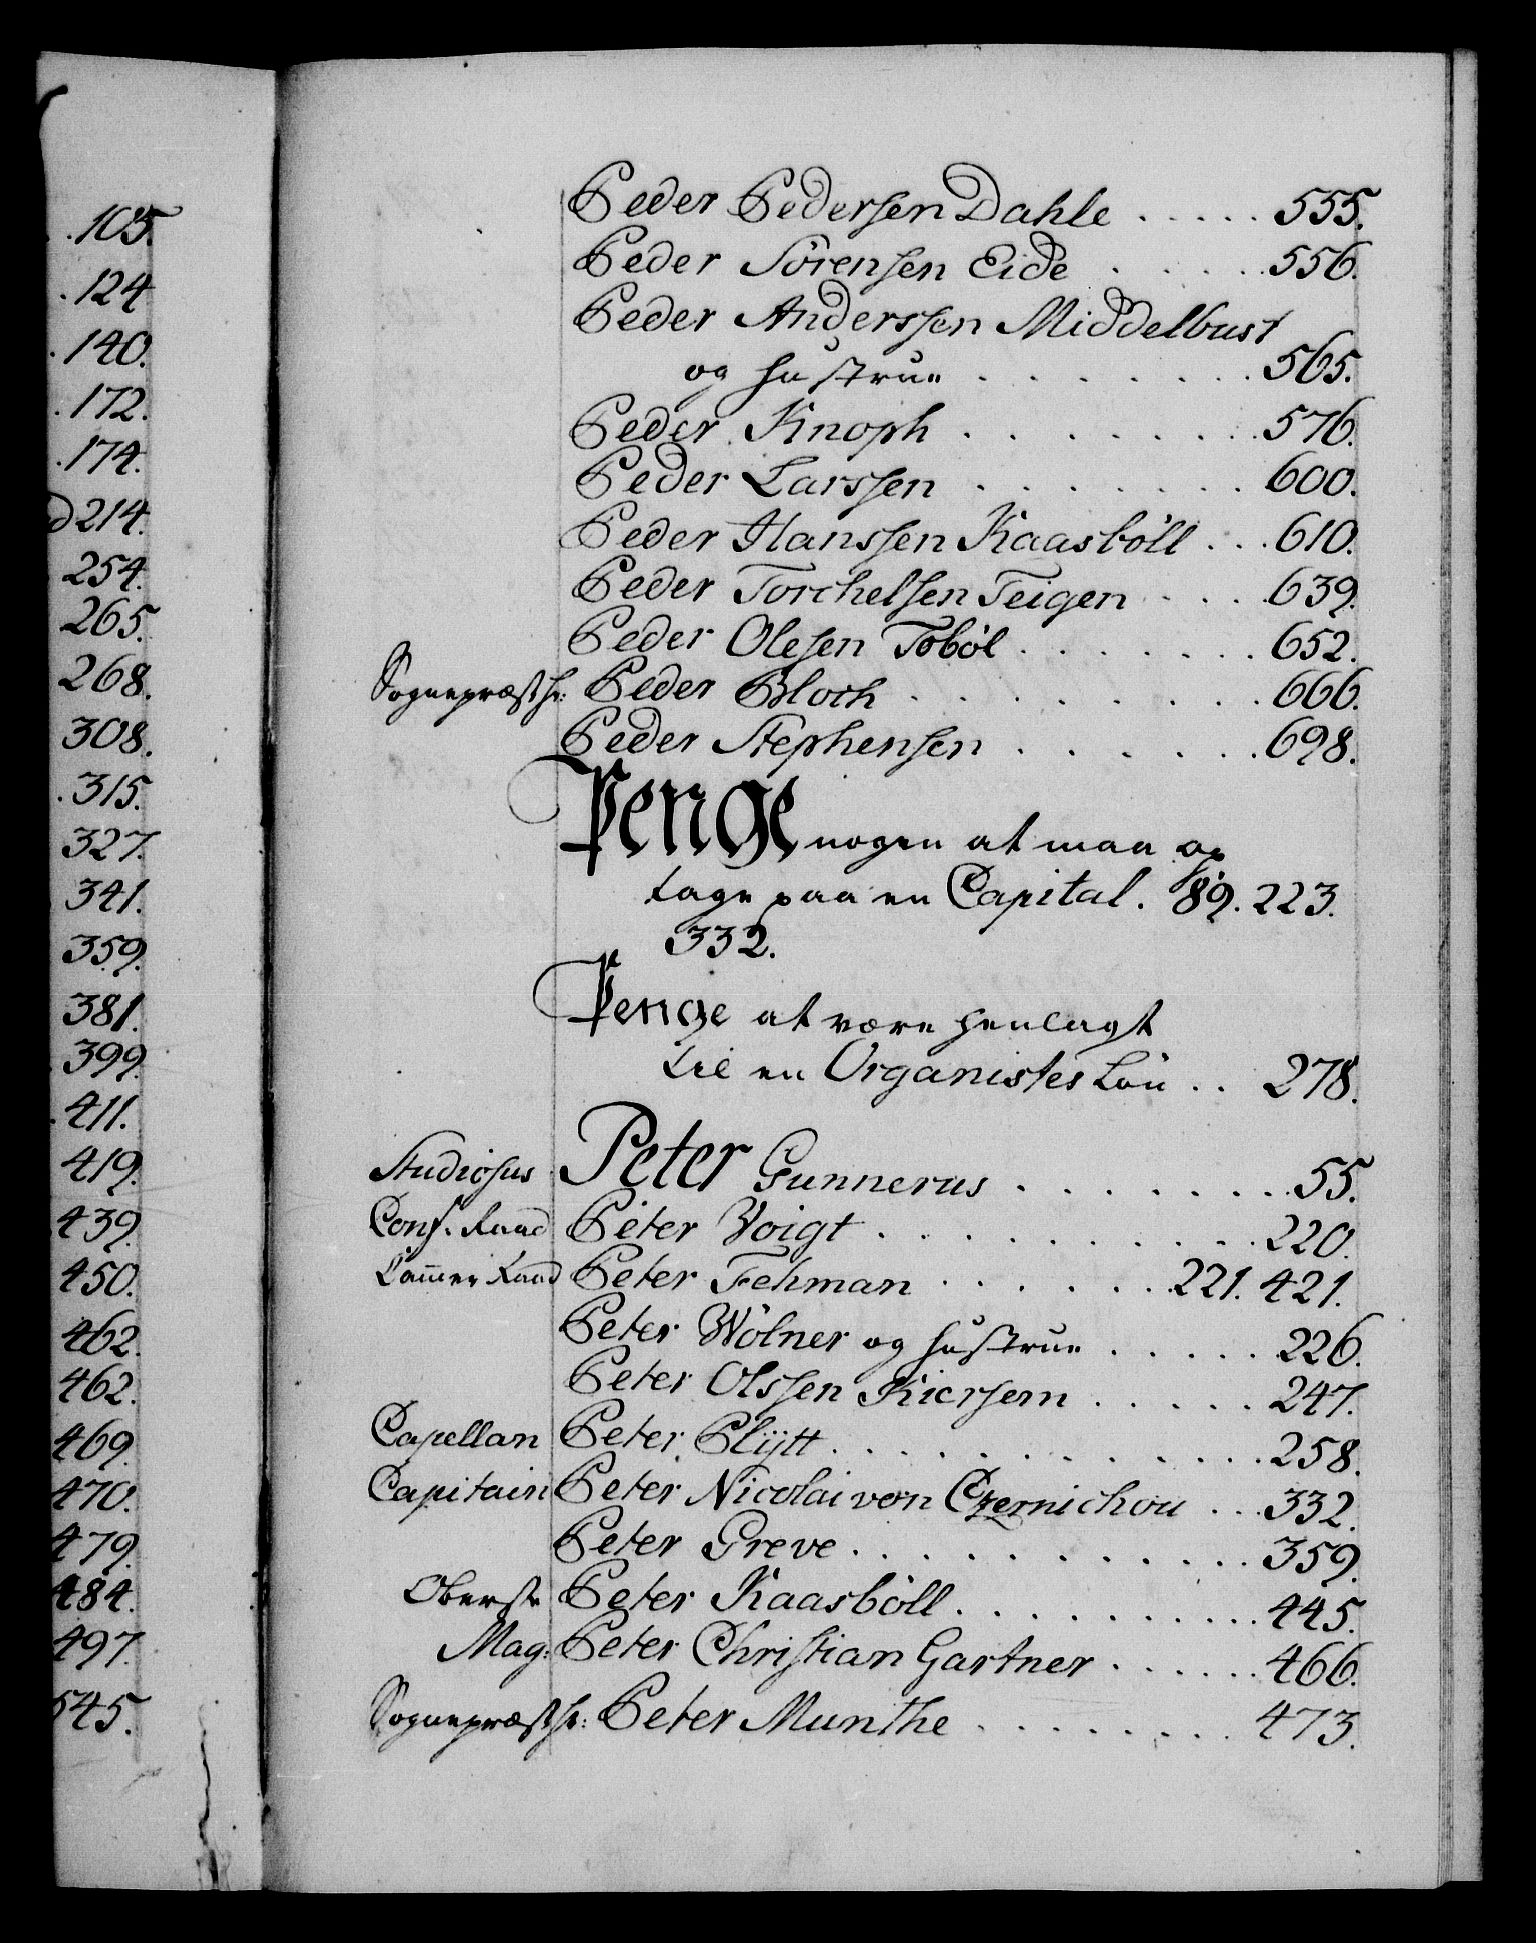 105.
124
140.
172.
174.
d 214.
254.
265.
268.
308.
315.
327.
341.
359.
381.
399.
411.
419.
439.
450.
462.
462.
469.
470.
479.
484.
497.
545.
Peder Pedersen Dahle ..... 555.
Peder Sörensen Eide ..... 556.
Peder Anderssen Middelbust
og hustrue ........ 565.
Peder Knoph ........ 576.
Peder Larssen ....... 600.
Peder Hanssen Kaasböll ... 610.
Peder Torchelsen Teigen .... 639.
Peder Olesen Toböl ....... 652.
Sognepræst hr: Peder Bloch ......... 666.
Peder Stephensen ....... 698.
Penge nogen at maa op
tage paa en Capital. 89. 223.
332.
Penge at være henlagt
til en Organistes Lön .. 278.
Studiosus Peter Gunnerus ........ 55.
Conf. Raad Peter Voigt .......... 220.
Cammer Raad Peter Fehman ...... 221. 421.
Peter Wölner og hustrue ..... 226.
Peter Olssen Kiersem ..... 247.
Capellan Peter Plÿtt ........... 258.
Capitain Peter Nicolai von Czernichou ... 332.
Peter Greve ........... 359.
Oberste Peter Kaasböll ........... 445.
Mag: Peter Christian Gartner ...... 466.
Sognepræst hr: Peter Munthe ....... 473.